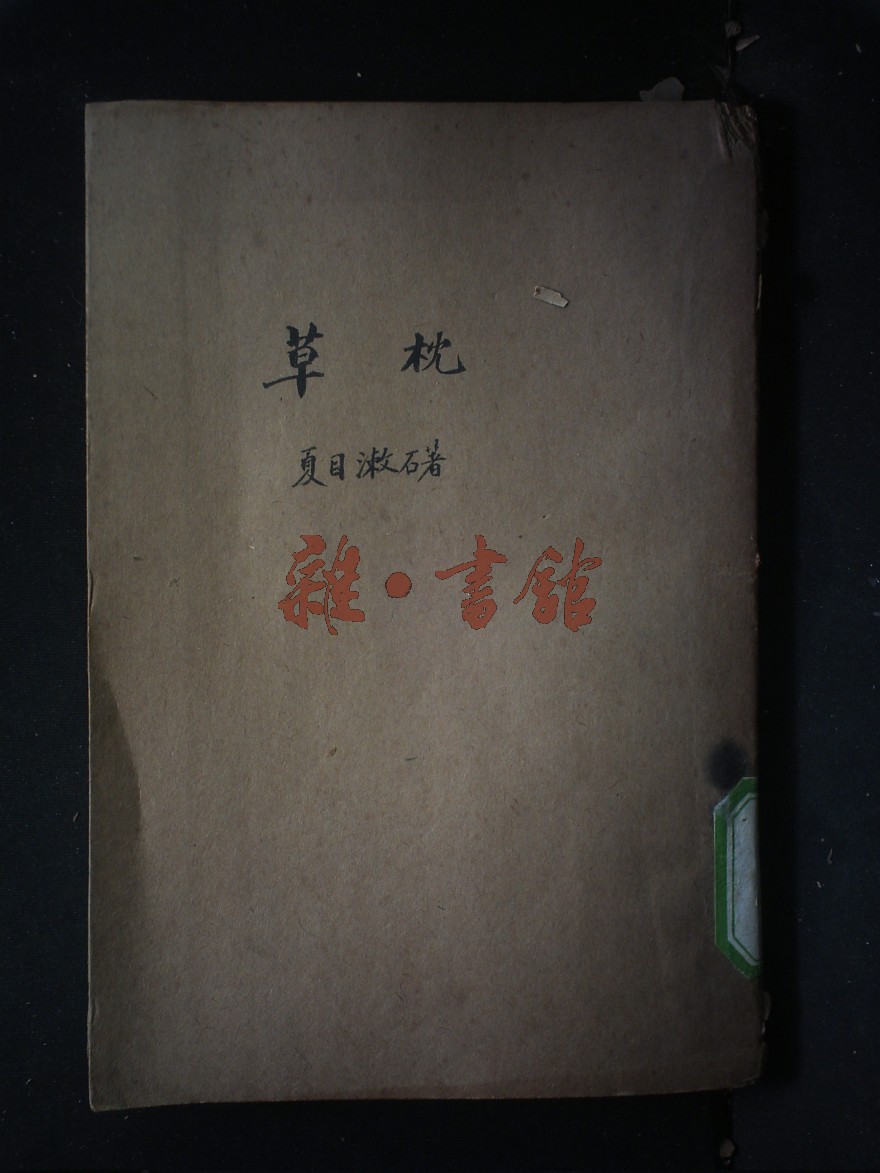 草 枕
夏目漱石著
雜·書館